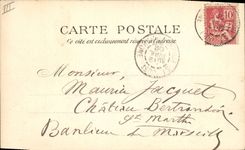 III
CARTE POSTALE
Ce côté est exclusivement réservé à l'adresse
10
Monsieur,
Maurice Jacquet
Château Bertrandon
Ste Marthe
Banlieue de Marseille